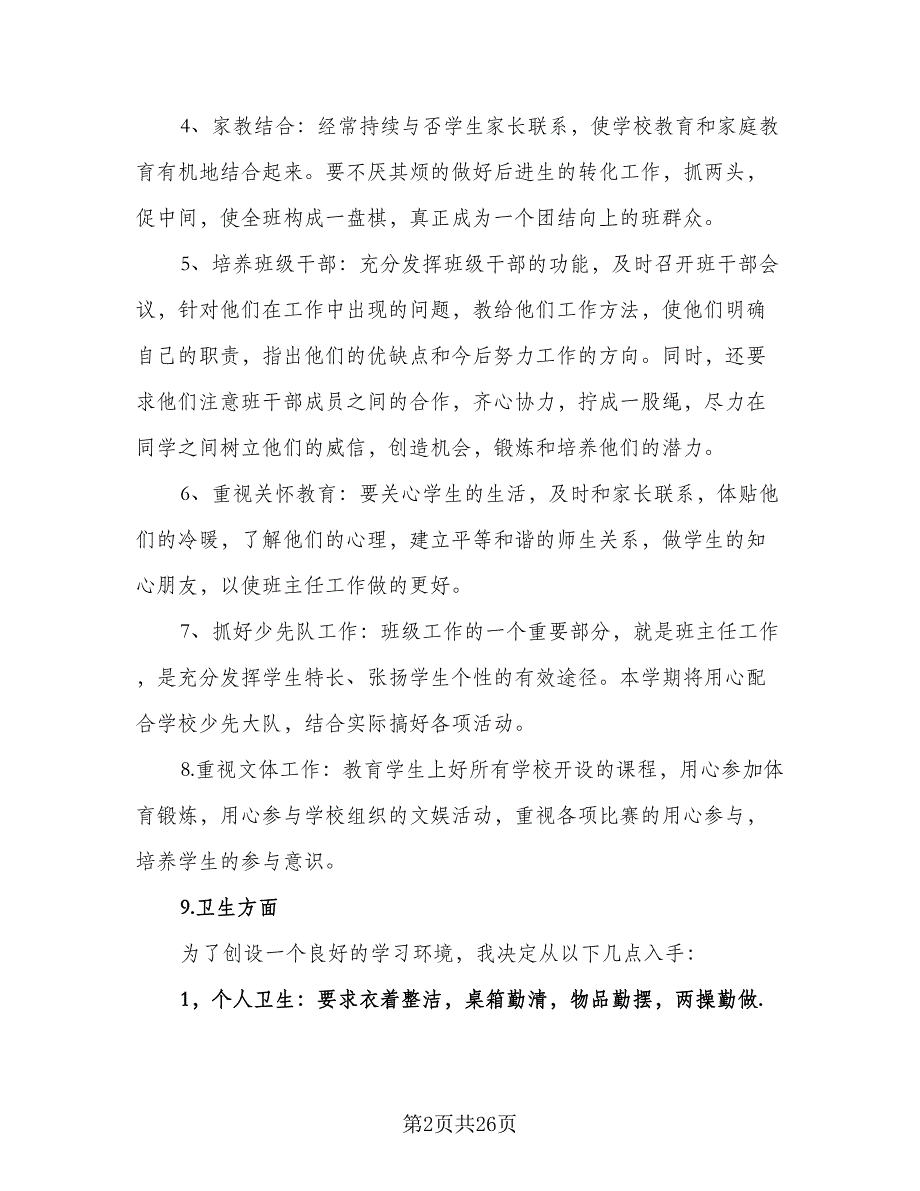 4、家教结合：经常持续与否学生家长联系，使学校教育和家庭教
育有机地结合起来。要不厌其烦的做好后进生的转化工作，抓两头，
促中间，使全班构成一盘棋，真正成为一个团结向上的班群众。
5、培养班级干部：充分发挥班级干部的功能，及时召开班干部会
议，针对他们在工作中出现的问题，教给他们工作方法，使他们明确
自己的职责，指出他们的优缺点和今后努力工作的方向。同时，还要
求他们注意班干部成员之间的合作，齐心协力，拧成一股绳，尽力在
同学之间树立他们的威信，创造机会，锻炼和培养他们的潜力。
6、重视关怀教育：要关心学生的生活，及时和家长联系，体贴他
们的冷暖，了解他们的心理，建立平等和谐的师生关系，做学生的知
心朋友，以使班主任工作做的更好。
7、抓好少先队工作：班级工作的一个重要部分，就是班主任工作
，是充分发挥学生特长、张扬学生个性的有效途径。本学期将用心配
合学校少先大队，结合实际搞好各项活动。
8.重视文体工作：教育学生上好所有学校开设的课程，用心参加体
育锻炼，用心参与学校组织的文娱活动，重视各项比赛的用心参与，
培养学生的参与意识。
9.卫生方面
为了创设一个良好的学习环境，我决定从以下几点入手：
1，个人卫生：要求衣着整洁，桌箱勤清，物品勤摆，两操勤做.
第2页共26页